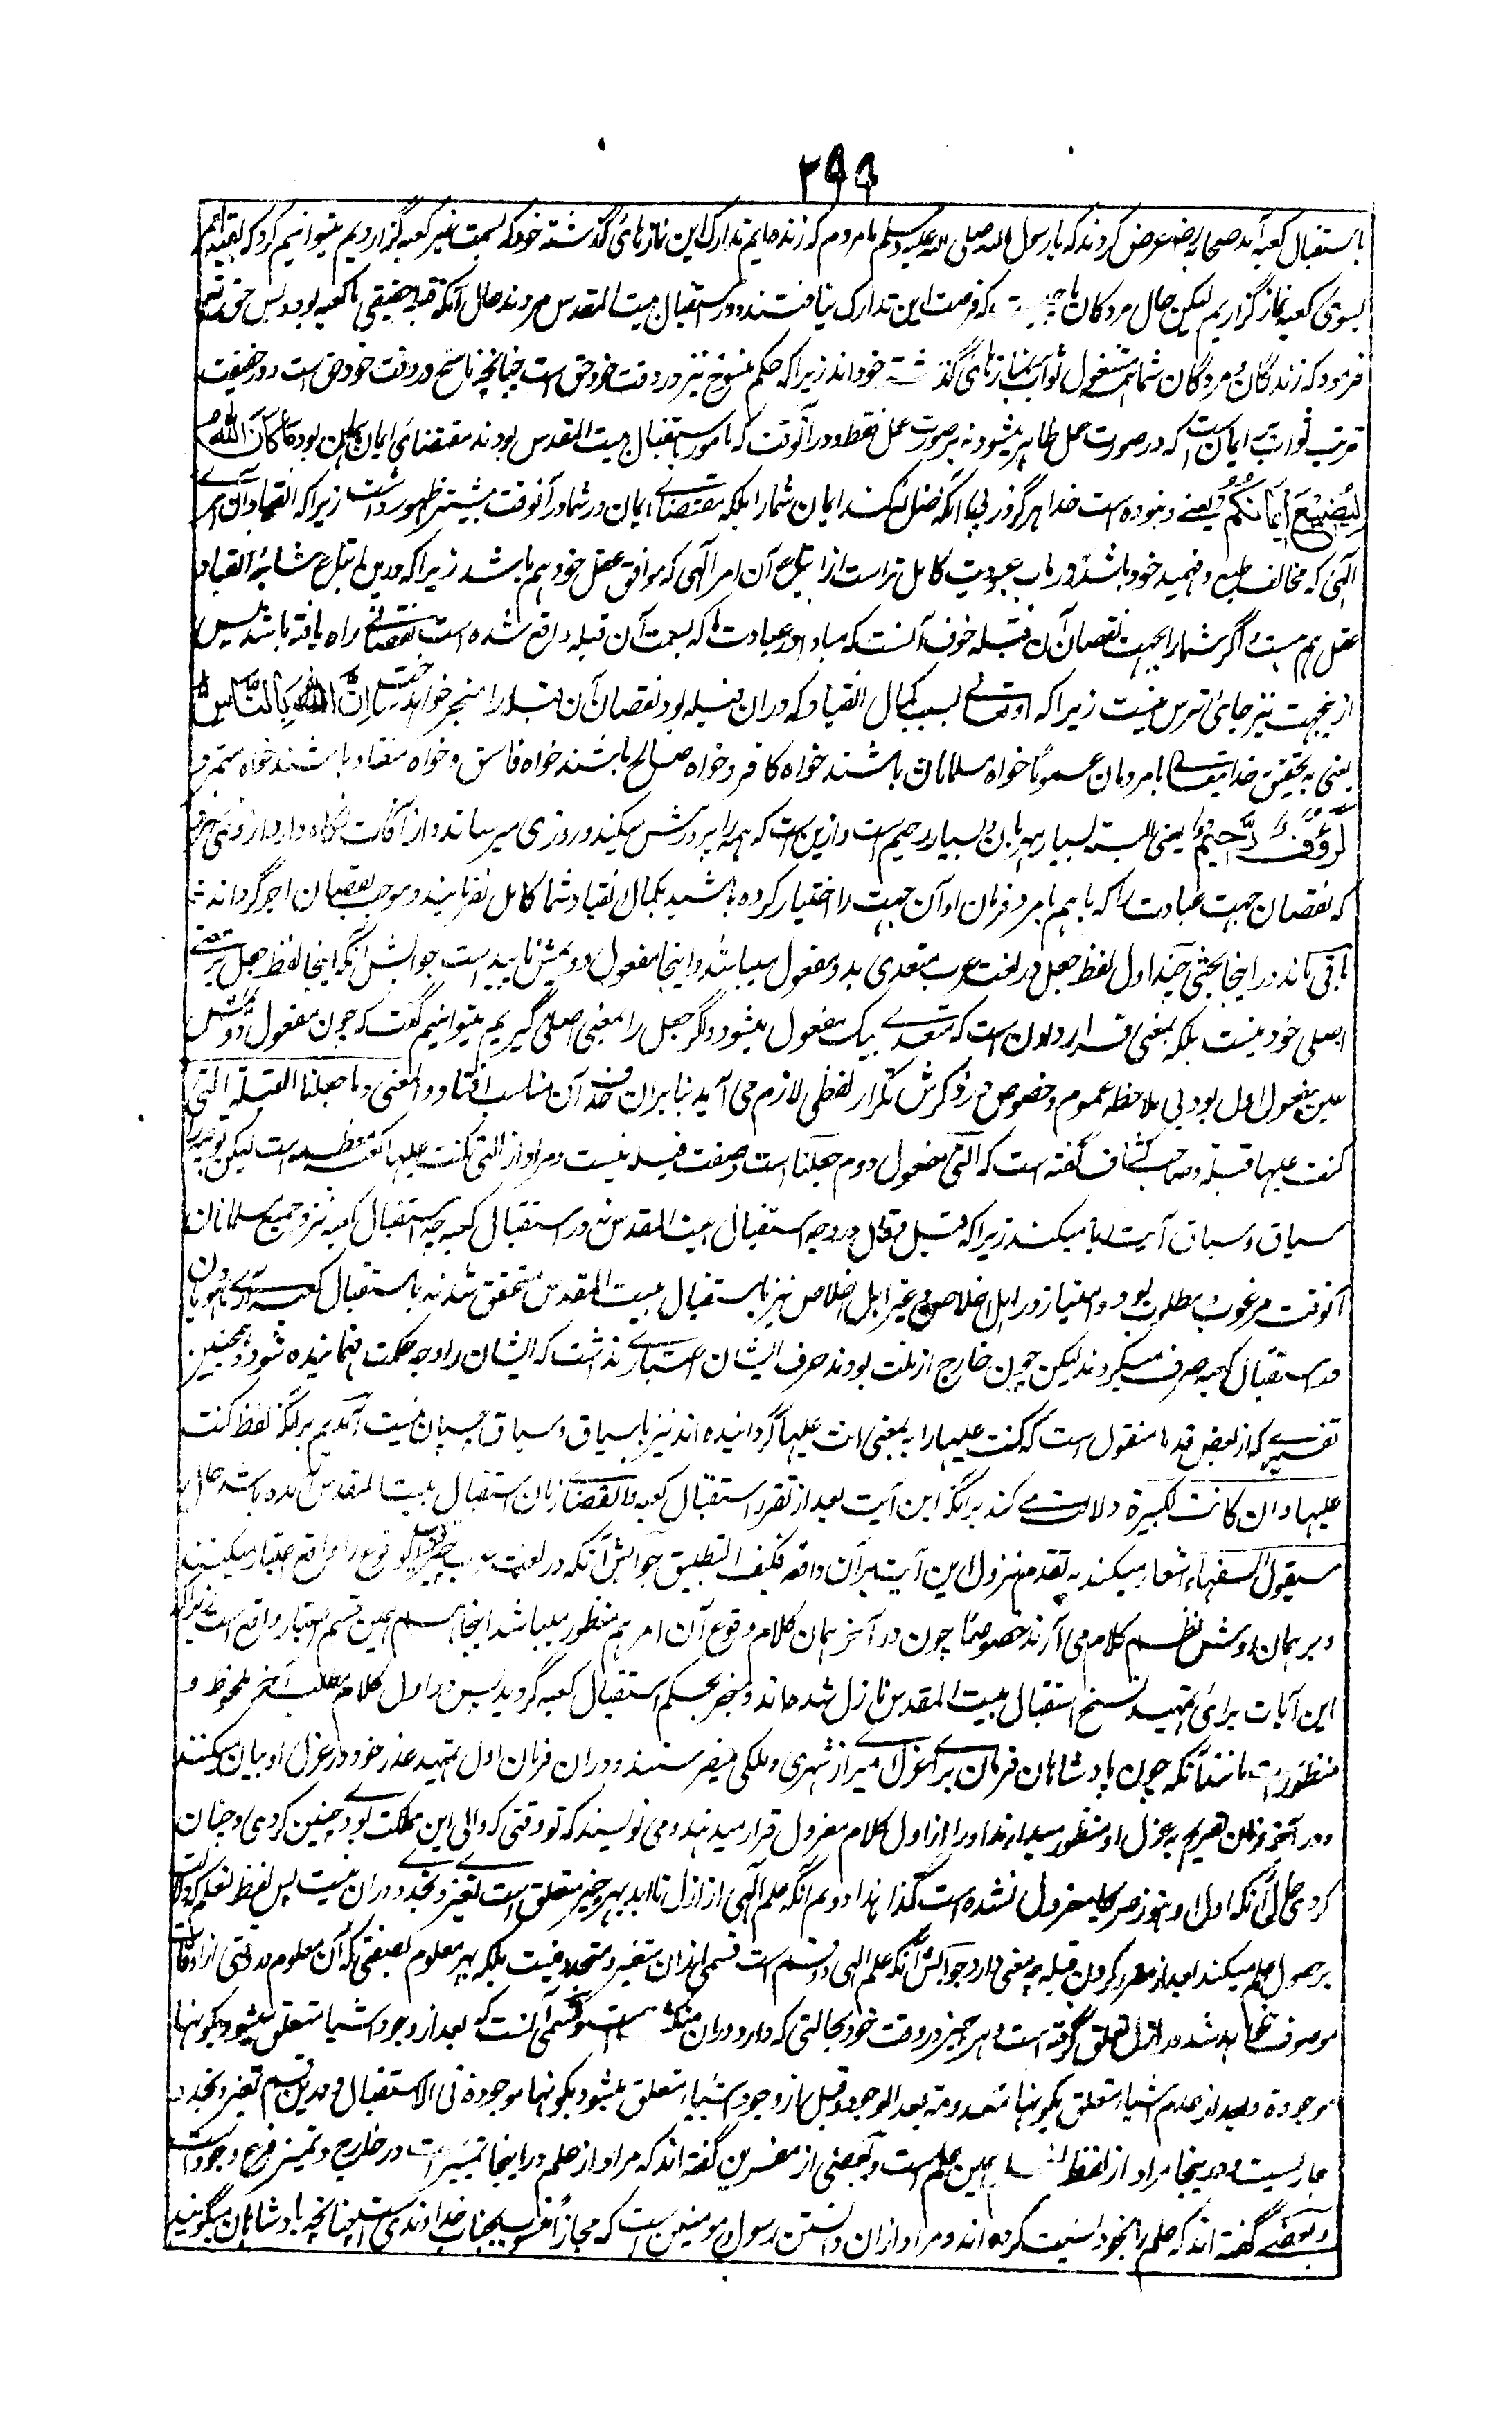 ۲۹۹
باستقبال کعبه آمد صحابه رض عرض کردند که یا رسول الله صلی الله علیه وسلم ما مردم که زنده‌ایم تدارک این نمازهای گذشته خود که بسمت غیر کعبه گزاردیم میتوانیم کرد که
بسوی کعبه نماز گزاریم لیکن حال مردگان ما که فرصت این تدارک نیافتند و در استقبال بیت المقدس مردند حال آنکه قبله حقیقی ما کعبه بود پس حق تعالی
فرمود که زندگان و مردگان شما مشغول ثواب نمازهای گذشته خوداند زیرا که حکم منسوخ نیز در وقت خود حق است چنانچه ناسخ در وقت خود حق است و در حقیقت
ترتب ثواب بر ایمان است که در صورت عمل ظاهر میشود نه بر صورت عمل فقط و در آنوقت که مامور باستقبال بیت المقدس بودند مقتضای ایمان همین بود وَمَا كَانَ اللهُ
لِيُضِيْعَ اِيْمَانَكُمْ یعنی و نبوده است خدا هرگز در پی آنکه ضائع کند ایمان شما را بلکه مقتضای ایمان در شما در آنوقت بیشتر ظهور داشت زیرا که انقیاد آن امر
الٓهی که مخالف طبع و فهمید خود باشد در باب عبودیت کامل تر است از اتباع آن امر الٓهی که موافق عقل خود هم باشد زیرا که درین اتباع شائبه انقیاد
عقل هم هست و اگر شما را بجهت نقصان آن قبله خوف آنست که مبادا در عبادت ها که بسمت آن قبله واقع شده است نقصانی راه یافته باشد پس
ازینجهت نیز جای ترس نیست زیرا که او تعالی بسبب کمال انقیاد که در آن قبله بود نقصان آن قبله را منجبر خواهد ساخت اِنَّ اللهَ بِالنَّاسِ
یعنی به تحقیق خدایتعالی بامردمان عموماً خواه مسلمانان باشند خواه کافر و خواه صالح باشند خواه فاسق و خواه منقاد باشند خواه متمرد
لَرَؤُفٌ رَّحِيْمٌ یعنی البته بسیار مهربان و بسیار رحیم است و ازین است که همه را پرورش میکند و روزی میرساند و از آفات نگاه دارد
که نقصان جهت عبادت را که باهم بامر و فرمان او آن جهت را اختیار کرده باشید بکمال انقیاد شما کامل نفرماید و موجب نقصان اجر گرداند
باقی ماند در اینجا بحثی چند اول لفظ جعل در لغت عرب متعدی بدو مفعول میباشد و اینجا مفعول دویمش ناپیدا است جوابش آنکه اینجا لفظ جعل بر معنی
اصلی خود نیست بلکه بمعنی قرار دادن است که متعدی بیک مفعول میشود و اگر جعل را بمعنی اصلی گیریم میتوانیم گفت که چون مفعول دومش
عین مفعول اول بود بی ملاحظه عموم و خصوص در ذکرش تکرار لفظی لازم می آید بنابران حذف آن مناسب افتاد و المعنی و ما جعلنا القبلة التی
کنت علیها قبلة و صاحب کشاف گفته است که التی مفعول دوم جعلنا است و صفت قبله نیست و مراد از التی کنت علیها کعبه معظمه است لیکن
سیاق و سباق آیت ابا میکند زیرا که قیل و قال در وجه استقبال بیت المقدس نه در استقبال کعبه چه استقبال کعبه نزد جمیع مسلمانان
آنوقت مرغوب و مطلوب بود و امتیاز در اهل اخلاص و غیر اهل اخلاص نیز باستقبال بیت المقدس متحقق شد نه باستقبال کعبه آری یهودان
در استقبال کعبه حرف میکردند لیکن چون خارج از ملت بودند حرف ایشان اعتباری نداشت که ایشان را وجه حکمت فهمانیده شود و همچنین
تفسیری که از بعض قدما منقول است که کنت علیها را به بمعنی انت علیها گردانیده اند نیز با سیاق و سباق چسپان نیست آمدیم برانکه لفظ کنت
علیها و ان کانت لکبیرة دلالت می کند برانکه این آیت بعد از تقرر استقبال کعبه و انقضای زمان استقبال بیت المقدس
سیقول السفهاء اشعار میکند به تقدم نزول این آیت بر آن واقعه فکیف التطبیق جوابش آنکه در لغت عرب الوقوع را واقع اعتبار میکنند
و بر همان روش نظم کلام می آرند خصوصاً چون در آخر همان کلام وقوع آن امر هم منظور میباشد اینجا هم همین قسم اعتبار واقع است زیرا که
این آیات برای تمهید نسخ استقبال بیت المقدس نازل شده اند و منجر بحکم استقبال کعبه گردید پس در اول کلام مطلب آخر ملحوظ و
منظور است مانند آنکه چون پادشاهان فرمان برای عزل امیر از شهری و ملکی میفرستند و در آن فرمان اول تمهید عذر خود در عزل او بیان میکنند
و در آخر فرمان تصریح به عزل او منظور میدارند او را از اول کلام معزول قرار میدهند و می نویسند که تو وقتی که والی این مملکت بودی چنین کردی و چنان
کردی حال آنکه اول او هنوز معزول نشده است کذا هذا دوم آنکه علم الٓهی از ازل تا ابد بهر چیز متعلق است تغیر و تجدد در آن نیست پس لفظ لنعلم که دلالت
بر حصول علم میکند بعد از مقرر کردن قبله چه معنی دارد جوابش آنکه علم الٓهی دو قسم است قسمی از آن متغیر و متجدد نیست بلکه بهر معلوم بصفتی که آن معلوم در وقتی از اوقات
موصوف خواهد شد در ازل تعلق گرفته است و هر چیز در وقت خود بحالتی که دارد در آن منکشف است و قسمی آنست که بعد از وجود اشیا متعلق میشود بکونها
موجودة و بعد از عدم اشیاء متعلق بکونها معدومة بعد الوجود و قبل از وجود اشیاء متعلق میشود بکونها موجودة فی الاستقبال و درین قسم تغیر و تجدد
جاریست و در اینجا مراد از لفظ همین علم است و بعضی از مفسرین گفته اند که مراد از علم در اینجا تمییز است در خارج و تمییز فرع وجود است
و بعضی گفته اند که علم را بخود نسبت کرده اند و مراد از آن دانستن رسول و مومنین است که مجازاً منسوب بجناب خداوندی است چنانچه بادشاهان میگویند